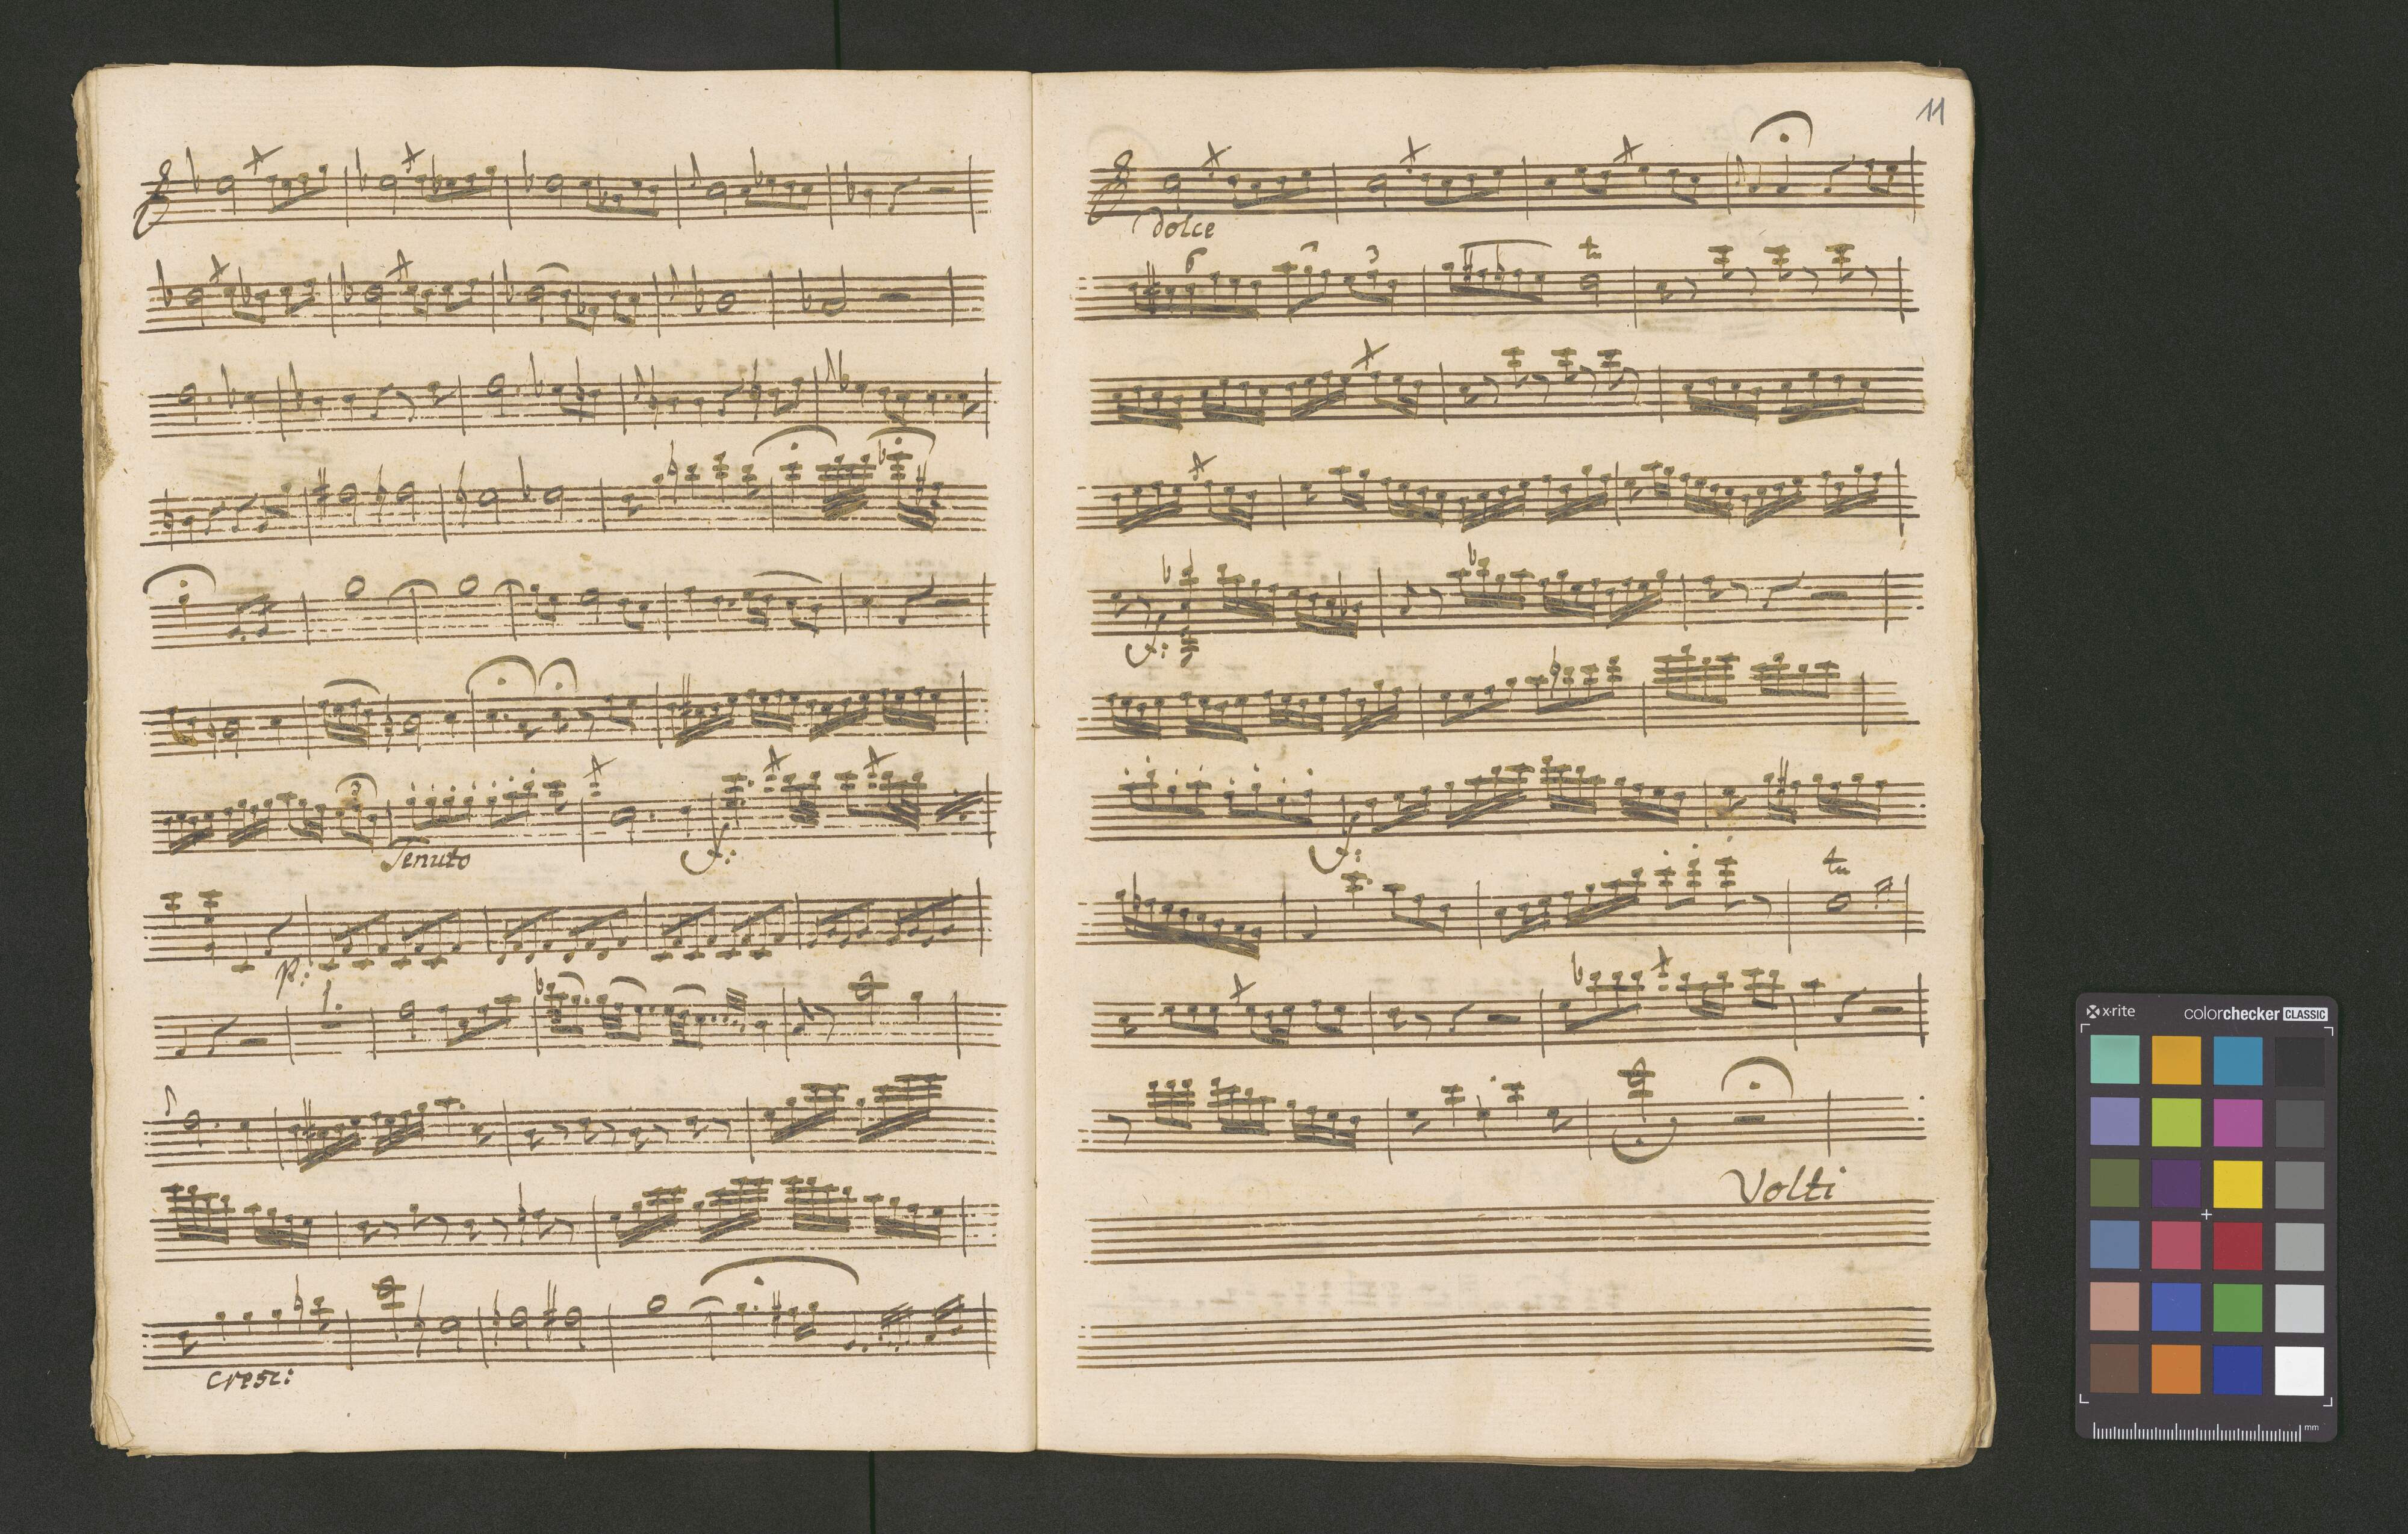 Tenuto
f:
p:
1.
cresc:
11
dolce
6
3
tr
f:
f:
tr
Volti
x·rite colorchecker CLASSIC
mm